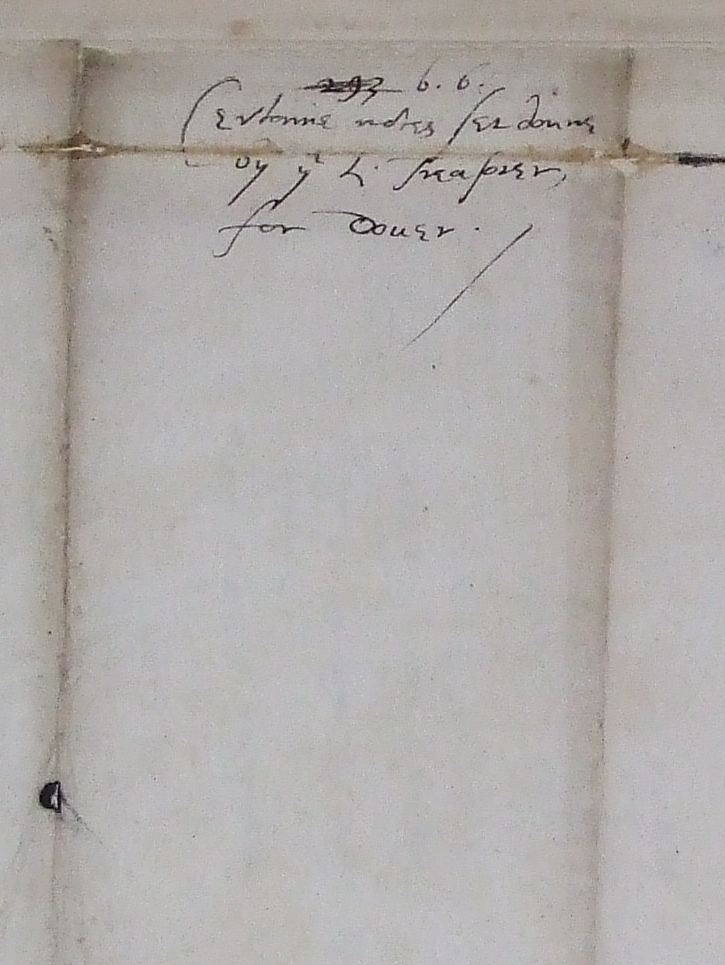 293 6. 6.
Certaine notes set doune
by yᵉ L. Treasorer,
for Douer.